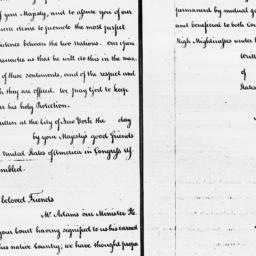 of your Majesty, and to assure you of our
sincere desire to promote the most perfect
between the two nations. Our
as that he will do this in the man
of these sentiments, and of the respect and
they are offered. We pray God to keep
his holy Protection.
Written at the City of New York the day
by your Majesty's good Friends
United States of America in Congress
assembled.
beloved Friends
Mr. Adams our Minister Ple
your Court having signified to us his earnest
his native Country; we have thought prope
permanent by mutual go
and beneficial to both Cou
High Mightinesses under t
Writt
of
States